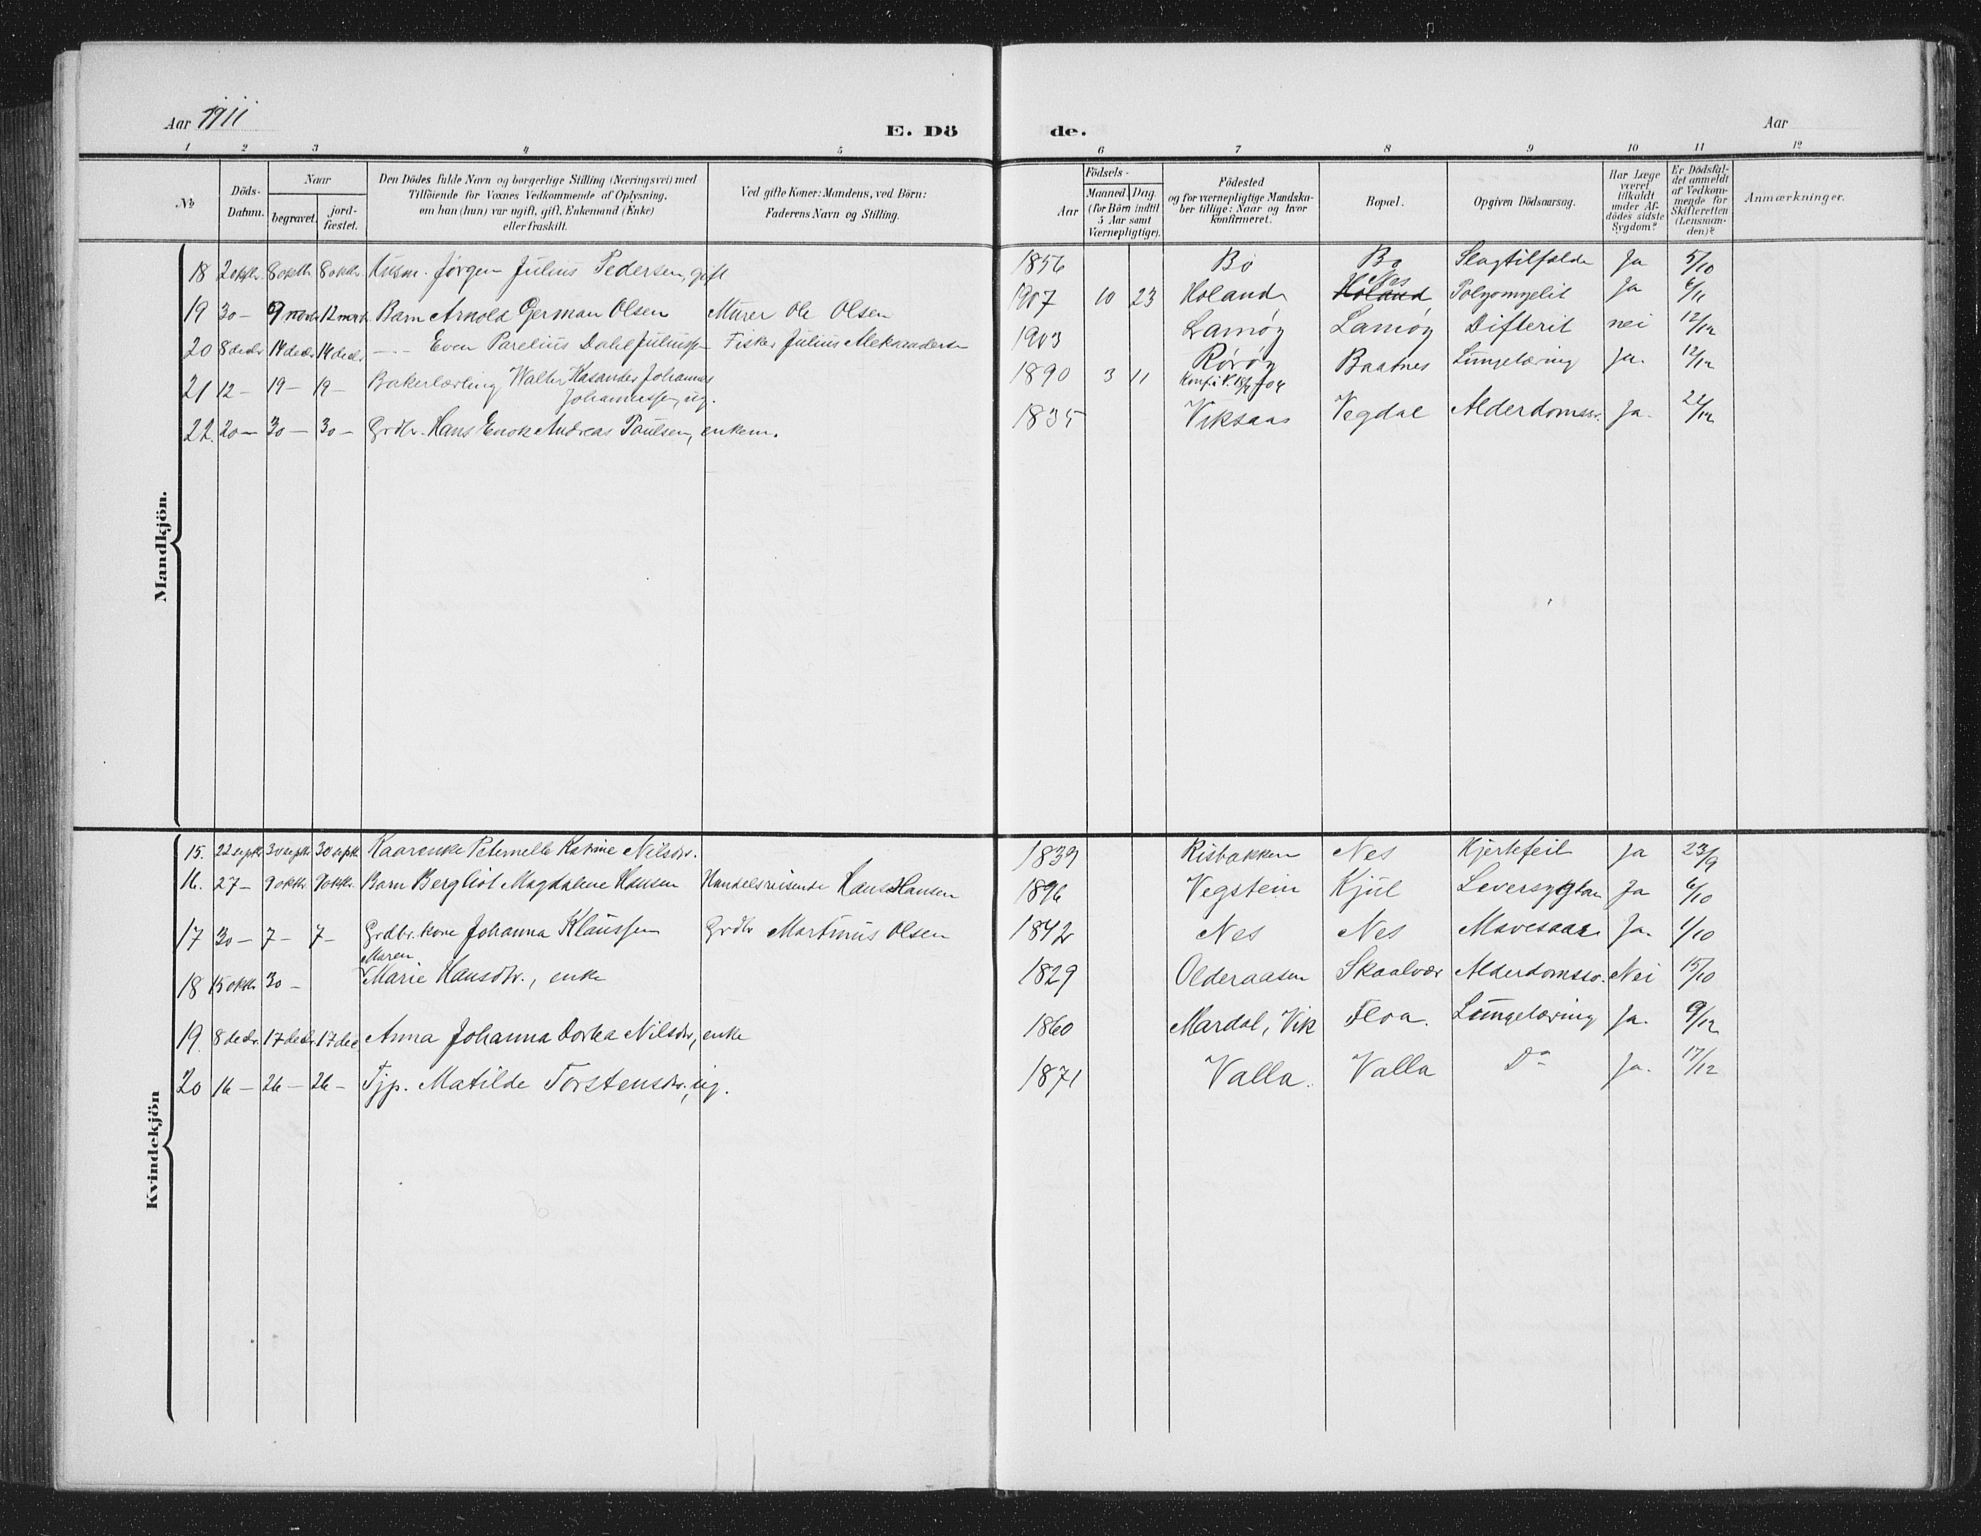 Aar 1911
E. Dö
de.
Aar
1 2 3 4 5 6 7 8 9 10 11 12
№
Döds-
Datum.
Naar
begravet.
jord-
fæstet.
Den Dödes fulde Navn og borgerlige Stilling (Næringsvei) med
Tilföiende for Voxnes Vedkommende af Oplysning,
om han (hun) var ugift, gift, Enkemand (Enke)
eller fraskilt.
Ved gifte Koner: Mandens, ved Börn:
Faderens Navn og Stilling.
Födsels-
Aar
Maaned
Dag
(for Börn indtil
5 Aar samt
Værnepligtige).
Födested
og for værnepligtige Mandska-
ber tillige: Naar og hvor
konfirmeret.
Bopæl.
Opgiven Dödsaarsag.
Har Læge
været
tilkaldt
under Af-
dödes sidste
Sygdom?
Er Dödsfal-
det anmeldt
af Vedkom-
mende for
Skifteretten
(Lensman-
den)?
Anmærkninger.
Mandkjön.
18 2 oktbr. 8 oktbr. 8 oktbr. Husm. Jørgen Julius Pedersen, gift 1856 Bø Bø Slagtilfælde Ja 5/10
19 30 — 9 novbr 12 novbr Barn Arnold German Olsen Murer Ole Olsen 1907 10 23 Holand Holand Nes Polyomyelit Ja 6/11
20 8 decbr 14 decbr 14 decbr. — Even Parelius Dahl Juliussen Fisker Julius Aleksandersen 1903 Lamøy Lamøy Difterit nei 12/12
21 12 — 19 — 19 — Bakerlærling Walter Hasander Johannes
Johannessen, ug. 1890 3 11 Rørøy Baatnes Lungetæring Ja. 12/12
22. 20 — 30 — 30 — Grdbr. Hans Enok Andreas Paulsen, enkem. 1835 Viksaas Vegdal Alderdomssv. Ja. 22/12
Kvindekjön
15. 22 septbr 30 septbr 30 septbr Kaarenke Peternelle Katrine Nilsdtr. 1839 Risbakken Nes Hjertefeil Ja 23/9
16. 27 — 9 oktbr. 9 oktbr. Barn Bergliot Magdalene Hansen Handelsreisende Hans Hansen 1896 Vegstein Kjul Leversygdom Ja 6/10
17 30 — 7 — 7 — Grdbr. kone Johanna Klaussen Grdbr Martinus Olsen 1842 Nes Nes Mavesaar Ja. 1/10
Maren
18 15 oktbr 30 — Marie Hansdtr., enke 1829 Olderaasen Skaalvær Alderdomssv. Nei 15/10
19. 8 decbr. 17 decbr 17 dec Anna Johanna Dorthea Nilsdtr, enke 1860 Mardal, Vik Floa. Lungetæring Ja. 9/12
20 16 — 26 — 26 — Tjp. Matilde Torstensdtr., ug. 1871 Valla. Valla Do Ja. 17/12